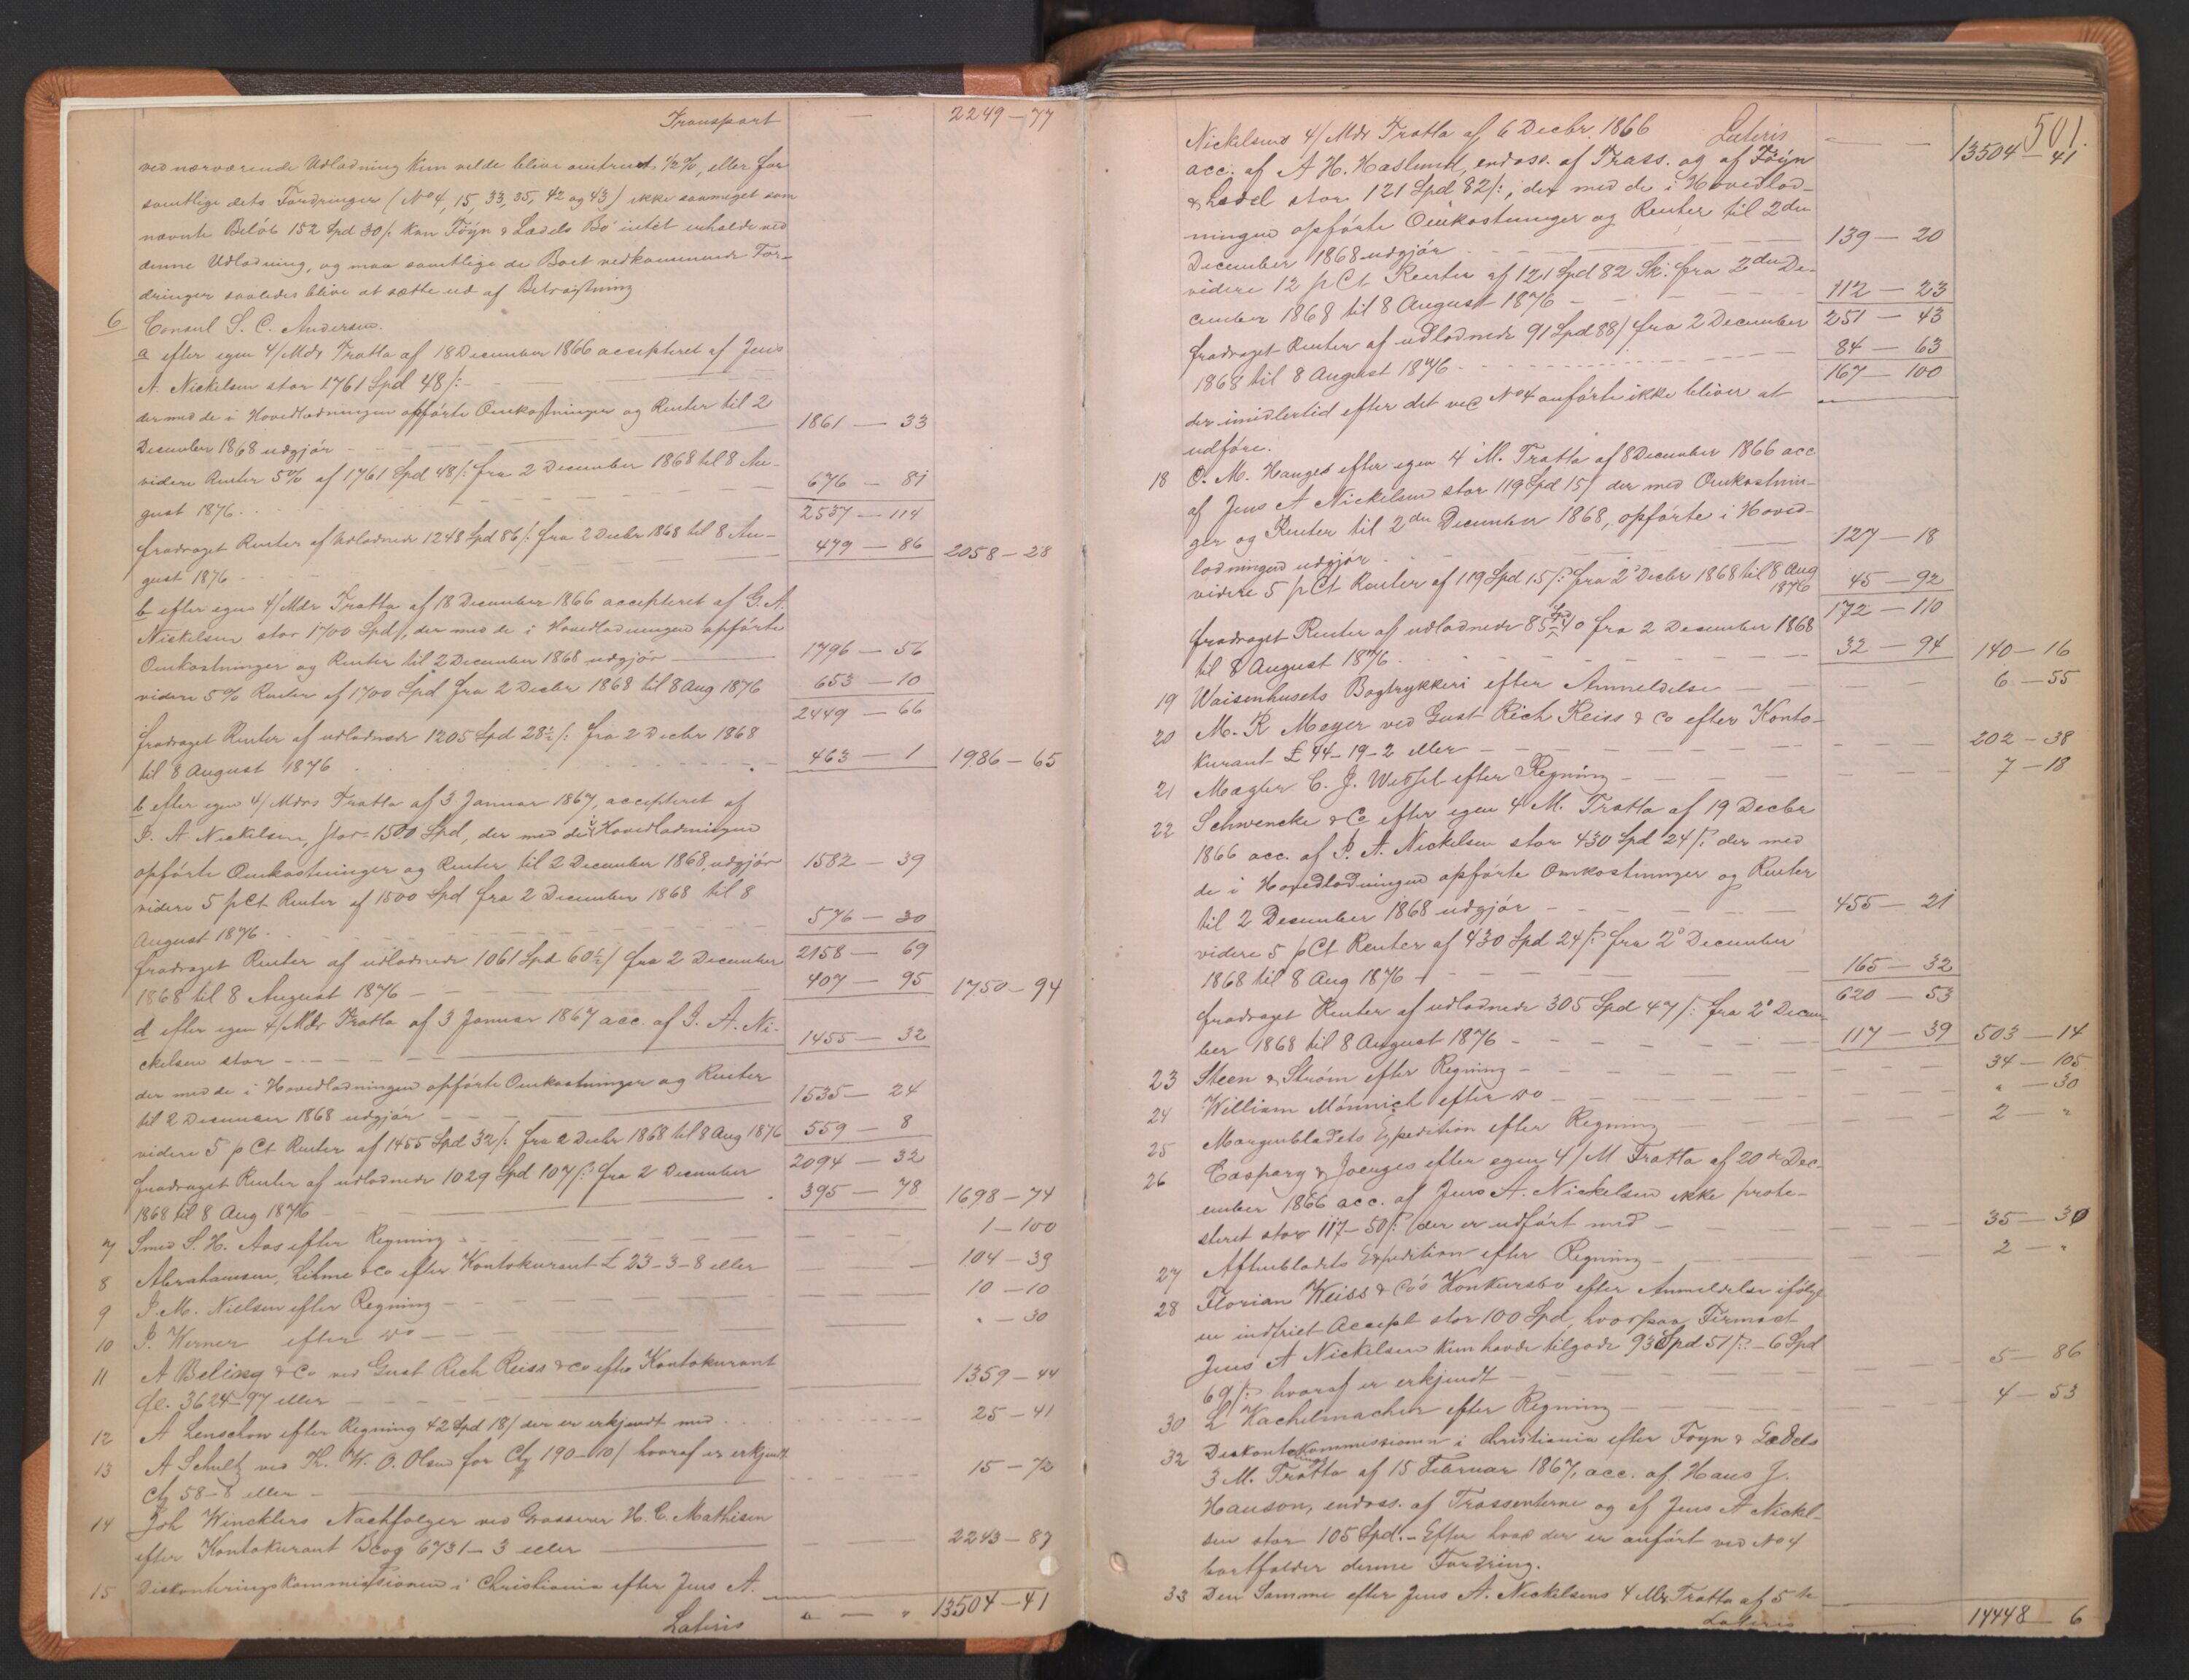 Transport — 2249 – 77
ved nærværende Udlodning kun vilde blive omtrent ½%, eller for
samtlige dets Fordringer (No 4, 15, 33, 35, 42 og 43) ikke saameget som
nævnte Beløb 152 Spd 30 /: kan Föyn & Lædels Bo intet erholde ved
denne Udlodning, og maa samtlige de Boet vedkommende For-
dringer saaledes blive at sætte ud af Betragtning
6 Consul S. C. Andersen.
a efter egen 4/Mdr Tratta af 18 December 1866 accepteret af Jens
A. Nickelsen stor 1761 Spd 48 /: —
der med de i Hovedlodningen opførte Omkostninger og Renter til 2
December 1868 udgjör — 1861 — 33
videre Renter 5% af 1761 Spd 48 /: fra 2 December 1868 til 8 Au-
gust 1876. 676 — 81
2537 — 114
fradraget Renter af udlodnede 1248 Spd 86 /: fra 2 Decbr 1868 til 8 Au-
gust 1876 479 — 86 2058 – 28
b efter egen 4/Mdr Tratta af 18 December 1866 accepteret af G. A.
Nickelsen stor 1700 Spd, der med de i Hovedlodningen opførte
Omkostninger og Renter til 2 December 1868 udgjör — 1796 — 56
videre 5% Renter af 1700 Spd fra 2 Decbr 1868 til 8 Aug 1876 653 — 10
2449 — 66
fradraget Renter af udlodnede 1205 Spd 28½ /: fra 2 Decbr 1868
til 8 August 1876 463 — 1 1986 – 65
b efter egen 4/Mdrs Tratta af 3 Januar 1867, accepteret af
J. A. Nickelsen, stor 1500 Spd, der med de i Hovedlodningen
opførte Omkostninger og Renter til 2 December 1868, udgjör 1582 — 39
videre 5 pCt Renter af 1500 Spd fra 2 December 1868 til 8
August 1876. 576 — 30
2158 — 69
fradraget Renter af udlodnede 1061 Spd 60½ / fra 2 December
1868 til 8 August 1876 — 407 — 95 1750 – 94
d efter egen 4/Mdr Tratta af 3 Januar 1867 acc. af J. A. Ni-
ckelsen stor — 1455 — 32
der med de i Hovedlodningen opførte Omkostninger og Renter
til 2 December 1868 udgjör 1535 — 24
videre 5 pCt Renter af 1455 Spd 32 /: fra 2 Decbr 1868 til 8 Aug 1876 559 — 8
2094 — 32
fradraget Renter af udlodnede 1029 Spd 107 /: fra 2 December
1868 til 8 Aug 1876 — 395 — 78 1698 – 74
7 Smed S. H. Aas efter Regning 1 – 100
8 Abrahamsen, Lihme & Co efter Kontokurant £ 23 – 3 – 8 eller 104 – 39
9 J. M. Nielsen efter Regning — 10 – 10
10 P. Werner efter do — " – 30
11 A Beling & Co ved Gust Rich Reiss & Co efter Kontokurant
fl. 3624 – 97 eller — 1359 – 44
12 A Lenschow efter Regning 42 Spd 18/ der er erkjendt med 25 – 41
13 A Schultz ved K. W. O. Olsen for 190 – 10 / hvoraf er erkjendt
58 – 8 eller — 15 – 72
14 Joh Wincklers Nachfolger ved Grosserer H. C. Mathisen
efter Kontokurant Bcog 6731 – 3 eller — 2243 – 87
15 Diskonteringskommissionen i Christiania efter Jens A.
Lateris " — " 13504 – 41
501.
Nickelsens 4/Mdr Tratta af 6 Decbr. 1866 Lateris — 13504 – 41
acc. af A H. Haslund, endoss. af Trass. og af Föyn
& Lædel stor 121 Spd 82 /:, der med de i Hovedlod-
ningen opførte Omkostninger og Renter til 2den
December 1868 udgjör 139 — 20
videre 12 pCt Renter af 121 Spd 82 Sk: fra 2den De-
cember 1868 til 8 August 1876 — 112 — 23
251 — 43
fradraget Renter af udlodnede 91 Spd 88 / fra 2 December
1868 til 8 August 1876 84 — 63
167 — 100
der imidlertid efter det ved No 4 anførte ikke bliver at
udföre.
18 O. M. Hauges efter egen 4 M. Tratta af 8 December 1866 acc
af Jens A Nickelsen stor 119 Spd 15/ der med Omkostnin-
ger og Renter til 2den December 1868, opførte i Hoved-
lodningen udgjör 127 — 18
videre 5 pCt Renter af 119 Spd 15 /: fra 2 Decbr 1868 til 8 Aug
1876 45 — 92
172 — 110
fradraget Renter af udlodnede 85 Spd 40 fra 2 December 1868
til 8 August 1876. 32 — 94 140 – 16
19 Waisenhusets Bogtrykkeri efter Anmeldelse — 6 – 55
20 M. R Meyer ved Gust Rich Reiss & Co efter Konto-
kurant £ 44 – 19 – 2 eller — 202 – 38
21 Mægler C. J. Wetzel efter Regning — 7 – 18
22 Schwencke & Co efter egen 4 M. Tratta af 19 Decbr
1866 acc. af J. A. Nickelsen stor 430 Spd 24 /: der med
de i Hovedlodningen opførte Omkostninger og Renter
til 2 December 1868 udgjör — 455 — 21
videre 5 pCt Renter af 430 Spd 24 /: fra 2 December
1868 til 8 Aug 1876 — 165 — 32
620 — 53
fradraget Renter af udlodnede 305 Spd 47 /: fra 2 Decem-
ber 1868 til 8 August 1876 — 117 — 39 503 — 14
23 Steen & Ström efter Regning — 34 – 105
24 William Mönnich efter do — " – 30
25 Morgenbladets Expedition efter Regning 2 – "
26 Caspary & Joenges efter egen 4/M Tratta af 20de Dec-
ember 1866 acc. af Jens A. Nickelsen ikke prote-
steret stor 117 – 50 /: der er udført med — 35 – 30
27 Aftenbladets Expedition efter Regning — 2 – "
28 Florian Weiss & Co's Konkursbo efter Anmeldelse ifølge
en indfriet Accept stor 100 Spd, hvorpaa Firmaet
Jens A Nickelsen kun havde tilgode 93 Spd 51 /: – 6 Spd
69 /: hvoraf er erkjendt — 5 – 86
30 L Kachelmacher efter Regning — 4 – 53
32 Diskonteringskommissionen i Christiania efter Föyn & Lædels
3 M. Tratta af 15 Februar 1867, acc. af Hans J.
Hanson, endoss. af Trassenterne og af Jens A Nickel-
sen stor 105 Spd. – Efter hvad der er anført ved No 4
bortfalder denne Fordring.
33 Den Samme efter Jens A. Nickelsens 4 Mdr Tratta af 5te
Lateris — 14448 – 6